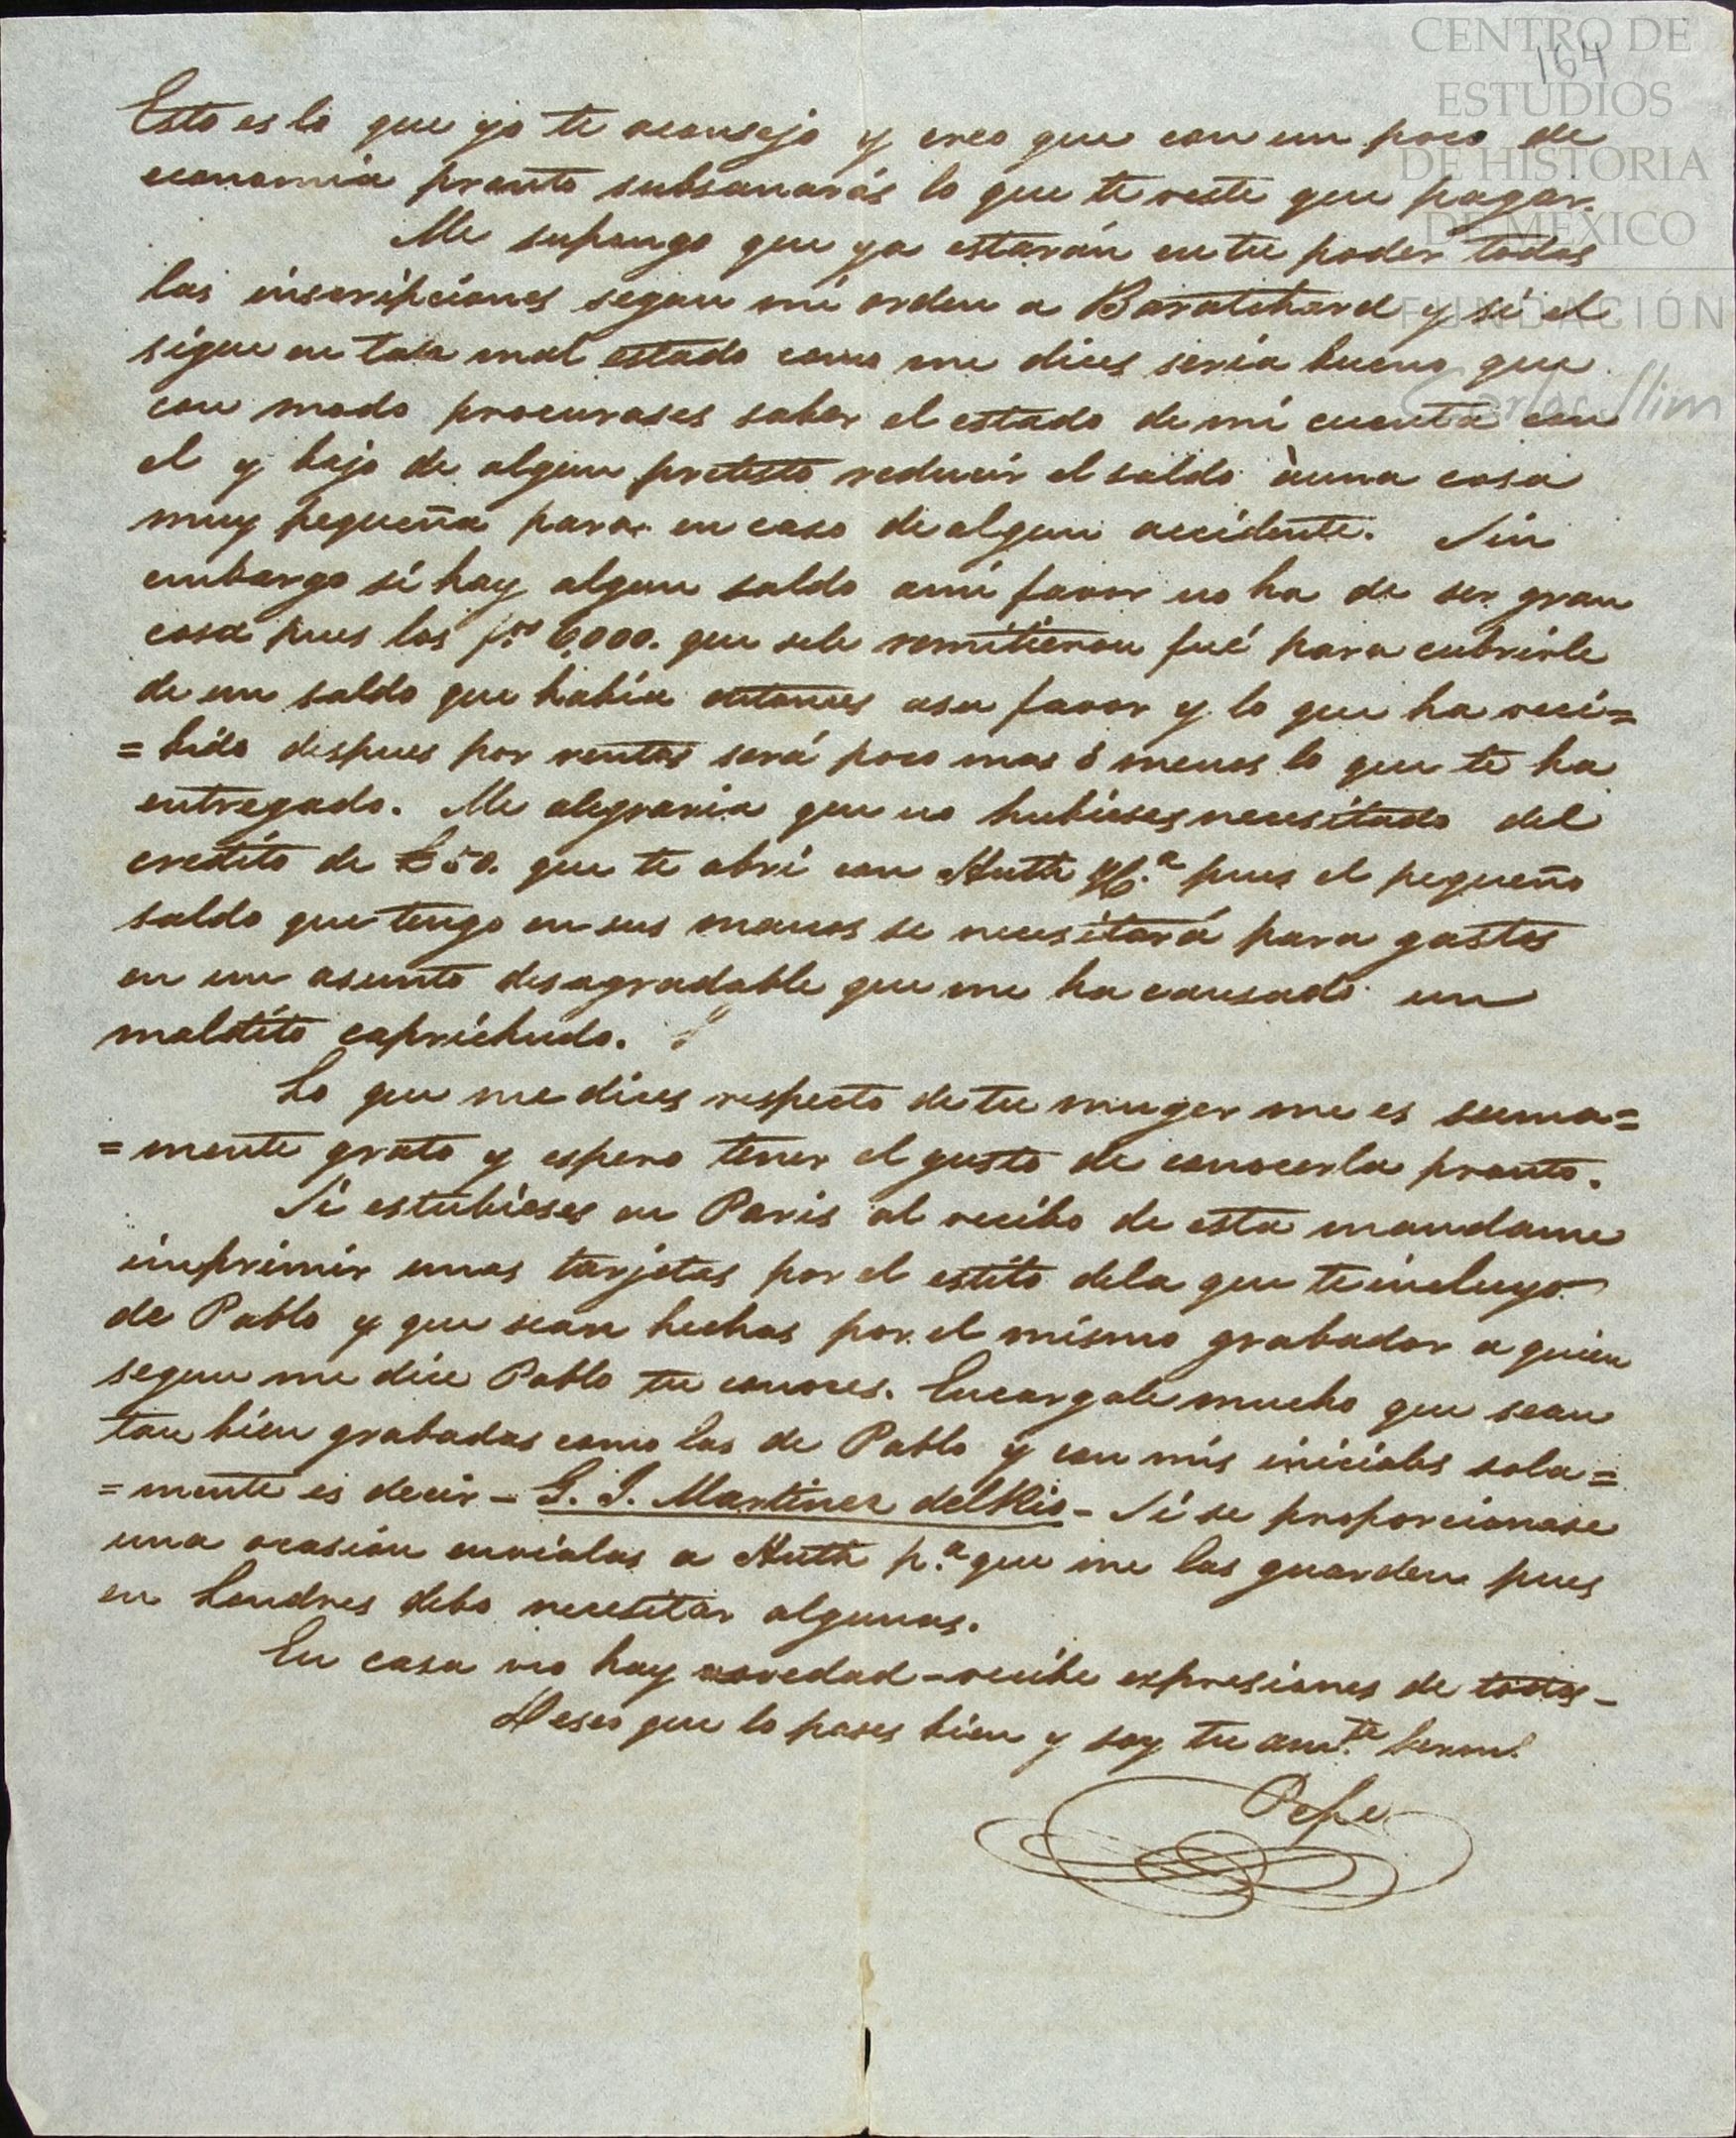 CENTRO DE
ESTUDIOS
DE HISTORIA
DE MÉXICO
FUNDACIÓN
Carlos Slim
164
Esto es lo que yo te aconsejo y creo que con un poco de
economia pronto subsanarás lo que te reste que pagar.
Me supongo que ya estarán en tu poder todas
las inscripciones segun mi orden a Baratchard y si el
sigue en tan mal estado como me dices seria bueno que
con modo procurases saber el estado de mi cuenta con
el y bajo de algun pretesto reducir el saldo à una cosa
muy pequeña para en caso de algun accidente. Sin
embargo si hay algun saldo a mi favor no ha de ser gran
cosa pues los f.ᵒˢ 6,000. que se le remitieron fué para cubrirle
de un saldo que habia entonces a su favor y lo que ha reci=
=bido despues por rentas será poco mas ó menos lo que te ha
entregado. Me alegraria que no hubieses necesitado del
credito de £50. que te abri con Huth y C.ª pues el pequeño
saldo que tengo en sus manos se necesitará para gastos
en un asunto desagradable que me ha causado un
maldito caprichudo.
Lo que me dices respecto de tu muger me es suma=
=mente grato y espero tener el gusto de conocerla pronto.
Si estubieses en Paris al recibo de esta mandame
imprimir unas tarjetas por el estilo de la que te incluyo
de Pablo y que sean hechas por el mismo grabador a quien
segun me dice Pablo tu conoces. Encargale mucho que sean
tan bien grabadas como las de Pablo y con mis iniciales sola=
=mente es decir - G. J. Martinez del Rio - Si se proporcionase
una ocasión envialas a Huth p.ª que me las guarden pues
en Londres debo necesitar algunas.
En casa no hay novedad - recibe expresiones de todos -
Deseo que lo pases bien y soy tu am.ᵗᵉ herm.
Pepe